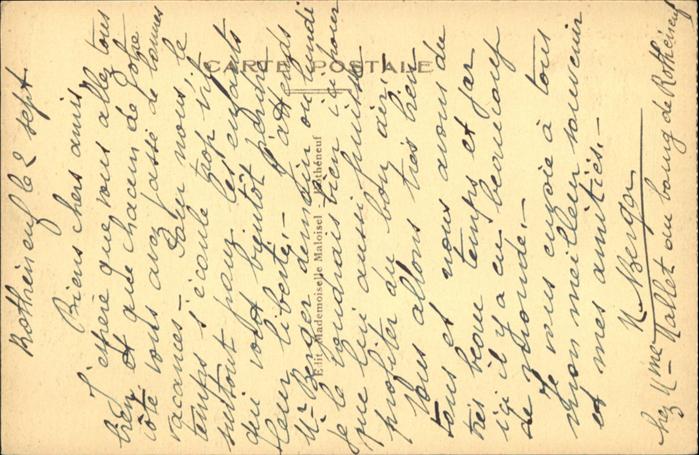 CARTE POSTALE
Edit. Mademoiselle Maloisel - Rothéneuf
Rothéneuf le 2 sept.
Biens chers amis,
J'espère que vous allez tous
bien et que chacun de votre
côté vous avez passé de bonnes
vacances - Pour nous le
temps s'écoule trop vite
surtout pour les enfants
qui vont bientôt perdre
leur liberté. - J'attends
Mr Berger demain ou lundi
je le voudrais bien ici pour
que lui aussi puisse
profiter du bon air!
Nous allons très bien
tous et nous avons du
très beau temps et par
ici il y a eu beaucoup
de monde. -
Je vous envoie à tous
mon meilleur souvenir
et mes amitiés. -
N. Berger
chez Mme Mallet au bourg de Rothéneuf